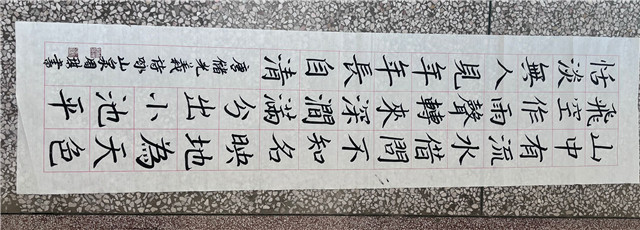 山中有流水借問不知名映地為天色
飛空作雨聲轉來深澗滿分出小池平
恬淡無人見年年長自清
唐儲光羲詩咏山泉國書